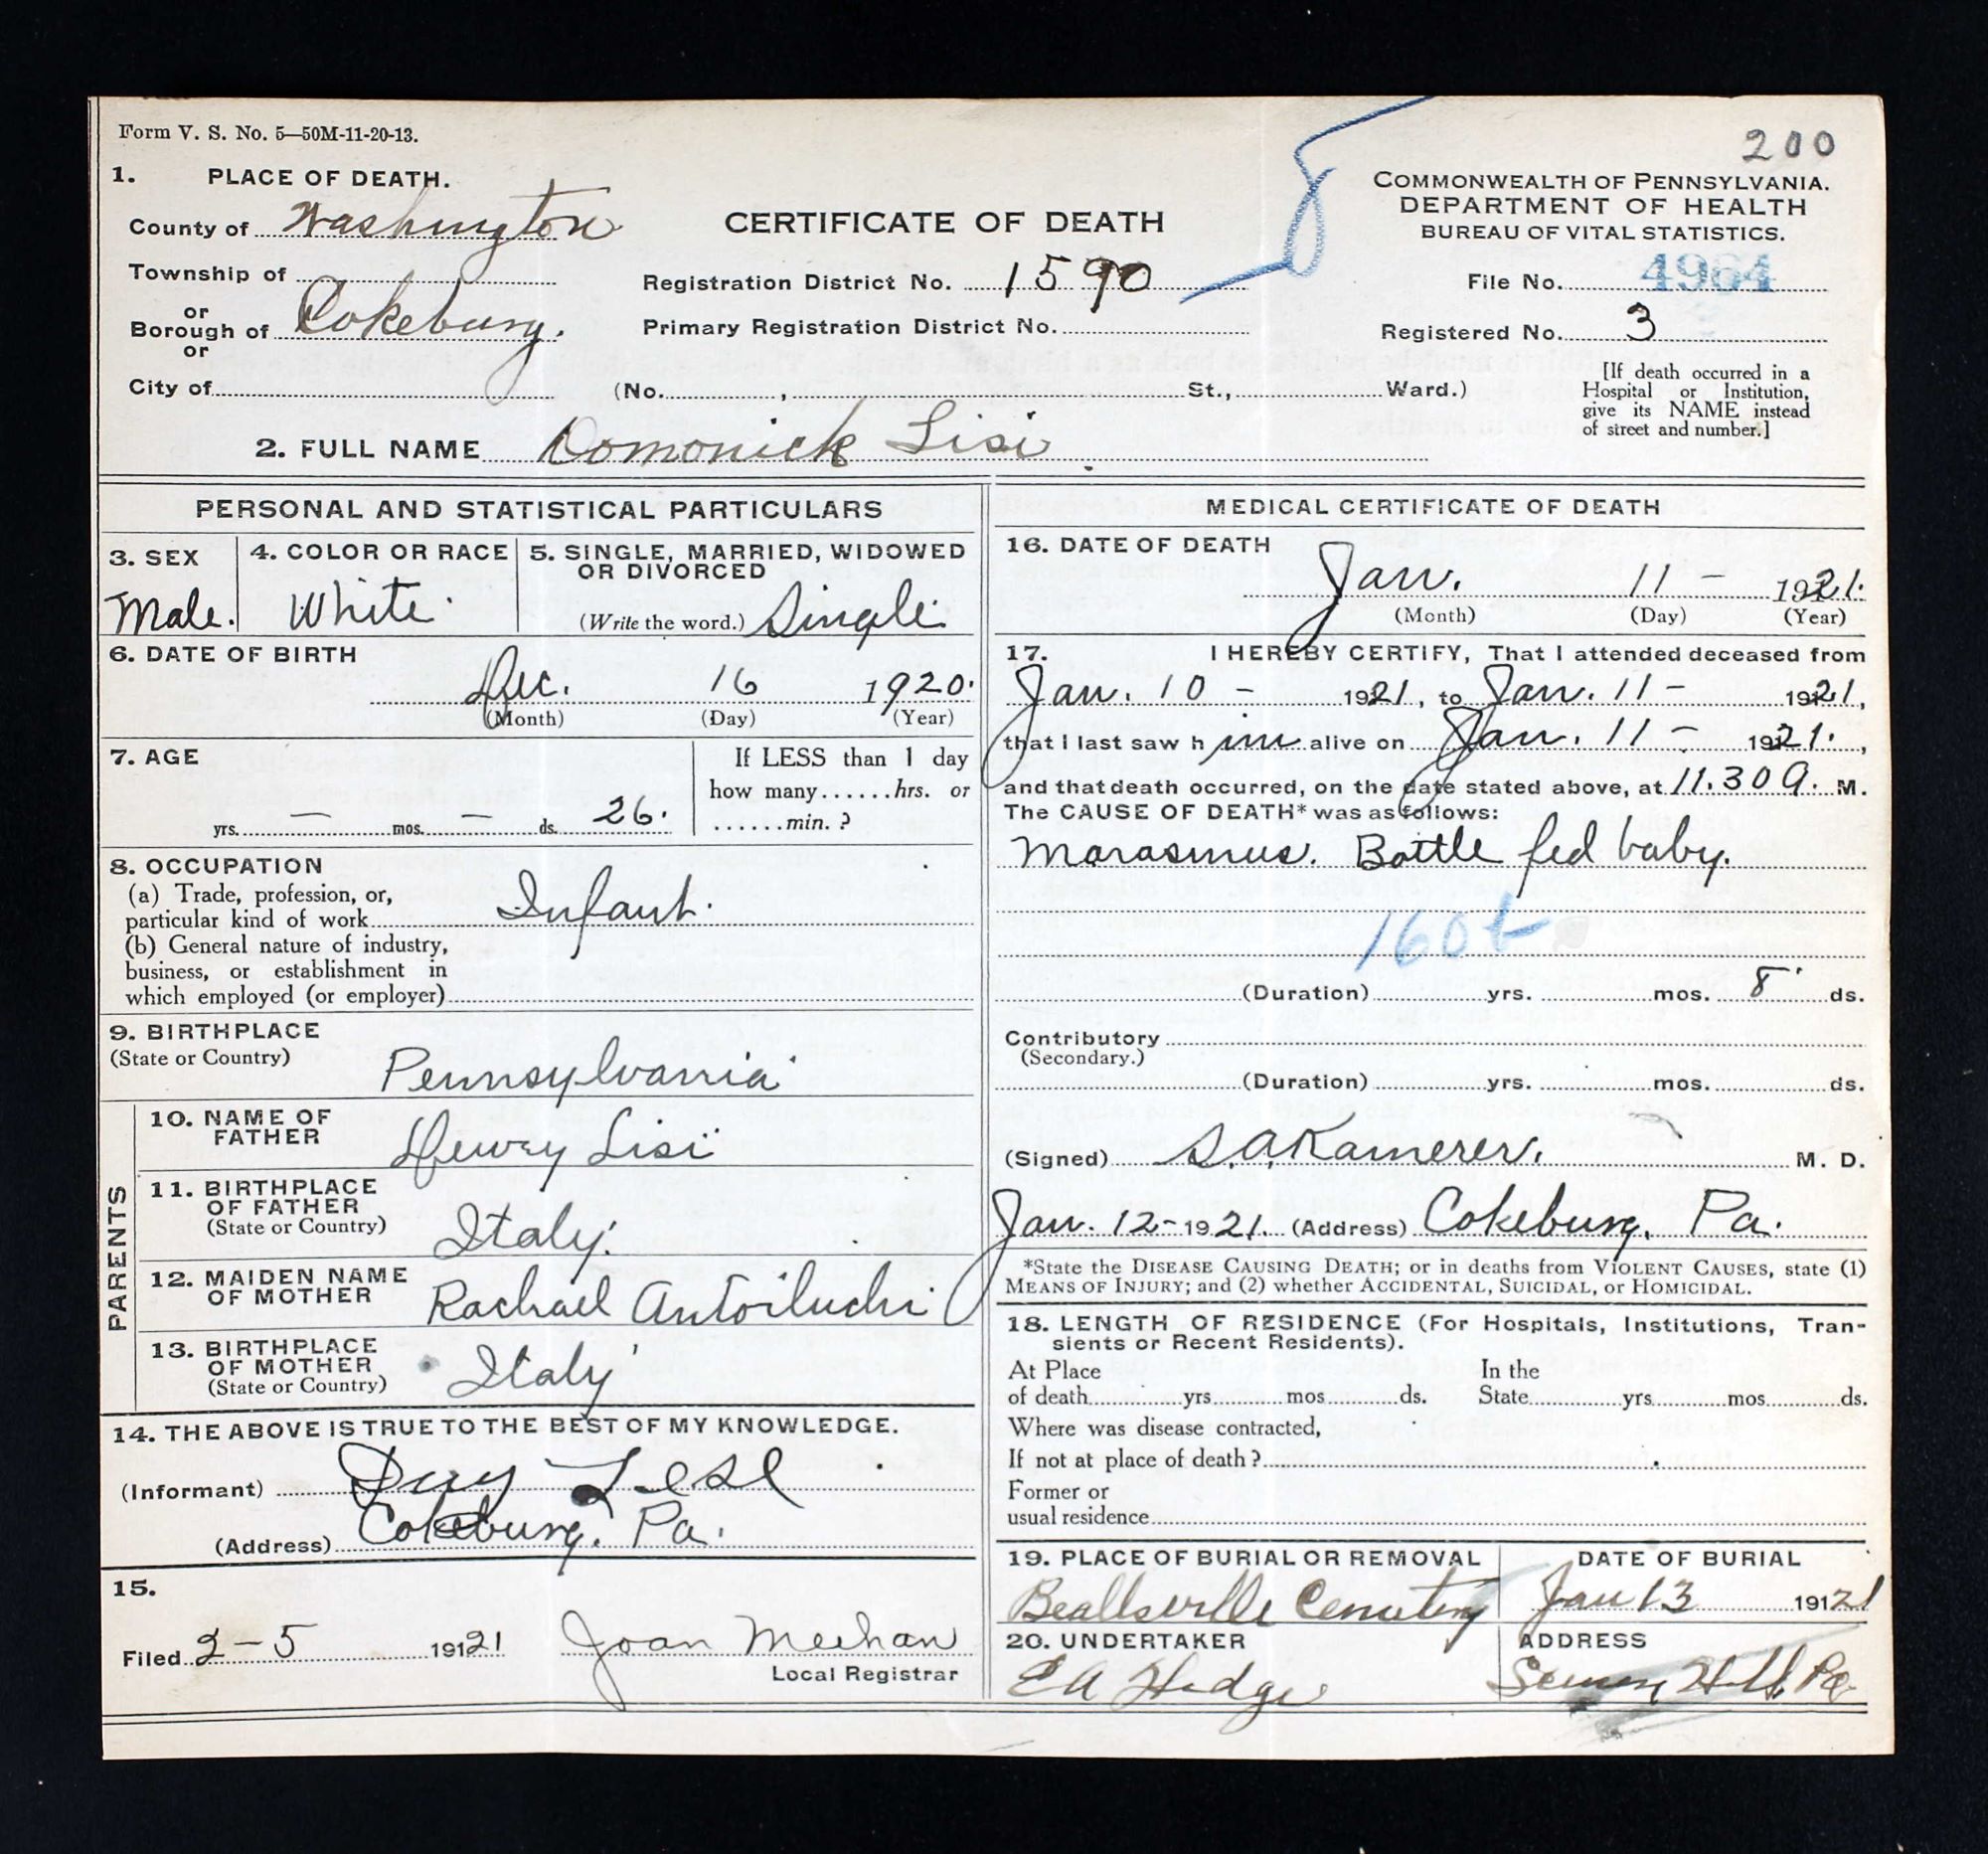 Form V. S. No. 5—50M-11-20-13.
200
1. PLACE OF DEATH.
County of Washington
Township of
or
Borough of Cokeburg.
or
City of
CERTIFICATE OF DEATH
Registration District No. 1590
Primary Registration District No.
(No. , St., Ward.)
COMMONWEALTH OF PENNSYLVANIA.
DEPARTMENT OF HEALTH
BUREAU OF VITAL STATISTICS.
File No. 4964
Registered No. 3
[If death occurred in a
Hospital or Institution,
give its NAME instead
of street and number.]
2. FULL NAME Domonick Lisi
PERSONAL AND STATISTICAL PARTICULARS
3. SEX
Male.
4. COLOR OR RACE
White
5. SINGLE, MARRIED, WIDOWED
OR DIVORCED
(Write the word.) Single
6. DATE OF BIRTH
Dec. 16 1920.
(Month) (Day) (Year)
7. AGE
yrs. — mos. — ds. 26.
If LESS than 1 day
how many......hrs. or
......min. ?
8. OCCUPATION
(a) Trade, profession, or,
particular kind of work Infant.
(b) General nature of industry,
business, or establishment in
which employed (or employer)
9. BIRTHPLACE
(State or Country)
Pennsylvania
PARENTS
10. NAME OF
FATHER
Dewey Lisi
11. BIRTHPLACE
OF FATHER
(State or Country)
Italy.
12. MAIDEN NAME
OF MOTHER
Rachael Antoiluchi
13. BIRTHPLACE
OF MOTHER
(State or Country)
Italy
14. THE ABOVE IS TRUE TO THE BEST OF MY KNOWLEDGE.
(Informant)
(Address) Cokeburg, Pa.
15.
Filed 2-5 191 21 Joan Meehan
Local Registrar
MEDICAL CERTIFICATE OF DEATH
16. DATE OF DEATH
Jan. 11 — 1921.
(Month) (Day) (Year)
17. I HEREBY CERTIFY, That I attended deceased from
Jan. 10 - 1921, to Jan. 11 - 1921,
that I last saw him alive on Jan. 11 - 1921.,
and that death occurred, on the date stated above, at 11.30 a. M.
The CAUSE OF DEATH* was as follows:
Marasmus. Bottle fed baby.
160b
(Duration) yrs. mos. 8 ds.
Contributory
(Secondary.)
(Duration) yrs. mos. ds.
(Signed) S.A. Kamerer. M. D.
Jan. 12-1921. (Address) Cokeburg, Pa.
*State the DISEASE CAUSING DEATH; or in deaths from VIOLENT CAUSES, state (1)
MEANS OF INJURY; and (2) whether ACCIDENTAL, SUICIDAL, or HOMICIDAL.
18. LENGTH OF RESIDENCE (For Hospitals, Institutions, Tran-
sients or Recent Residents).
At Place In the
of death yrs mos ds. State yrs mos ds.
Where was disease contracted,
If not at place of death ?
Former or
usual residence
19. PLACE OF BURIAL OR REMOVAL
Beallsville Cemetery
DATE OF BURIAL
Jan 13 19121
20. UNDERTAKER
E A Hedge
ADDRESS
Hill Pa